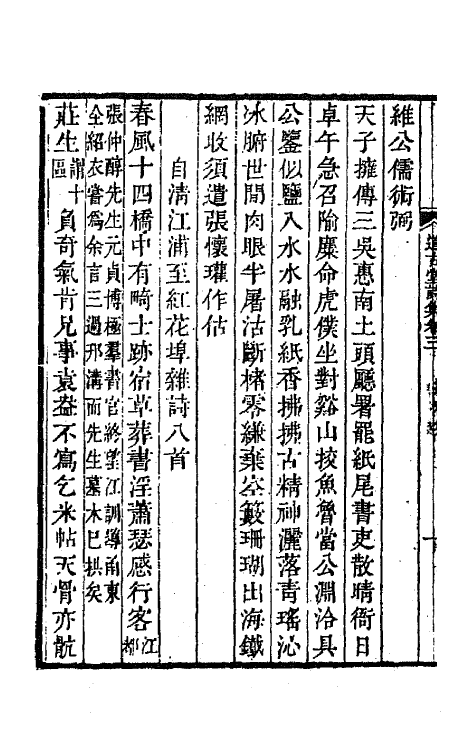 維公儒術弼
天子擁傳三吳惠南土頭廳署罷紙尾書吏散晴衙日
卓午急召隃麋命虎僕坐對谿山挍魚魯當公淵洽具
公鑒似鹽入水水融乳紙香拂拂古精神灑落青瑤沁
冰腑世間肉眼半屠沽斷楮零縑棄空籔珊瑚出海鐵
網收須遣張懷瓘作估
自清江浦至紅花埠雜詩八首
春風十四橋中有畸士跡宿草葬書淫蕭瑟感行客江都
張仲醇先生元貞博極羣書官終望江訓導甬東
全紹衣嘗為余言三過邗溝而先生墓木已拱矣
莊生謂十區負奇氣肯兄事袁盎不寫乞米帖天骨亦骯